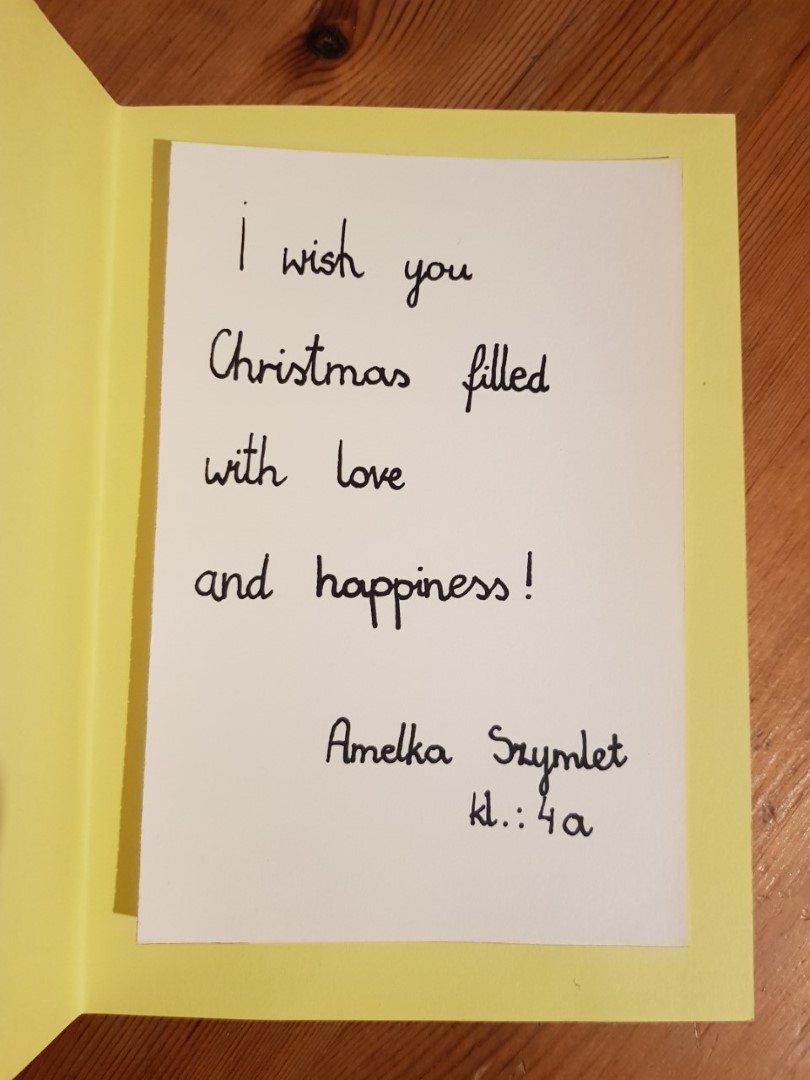 I wish you
Christmas filled
with love
and happiness!
Amelka Szymlet
kl.: 4a